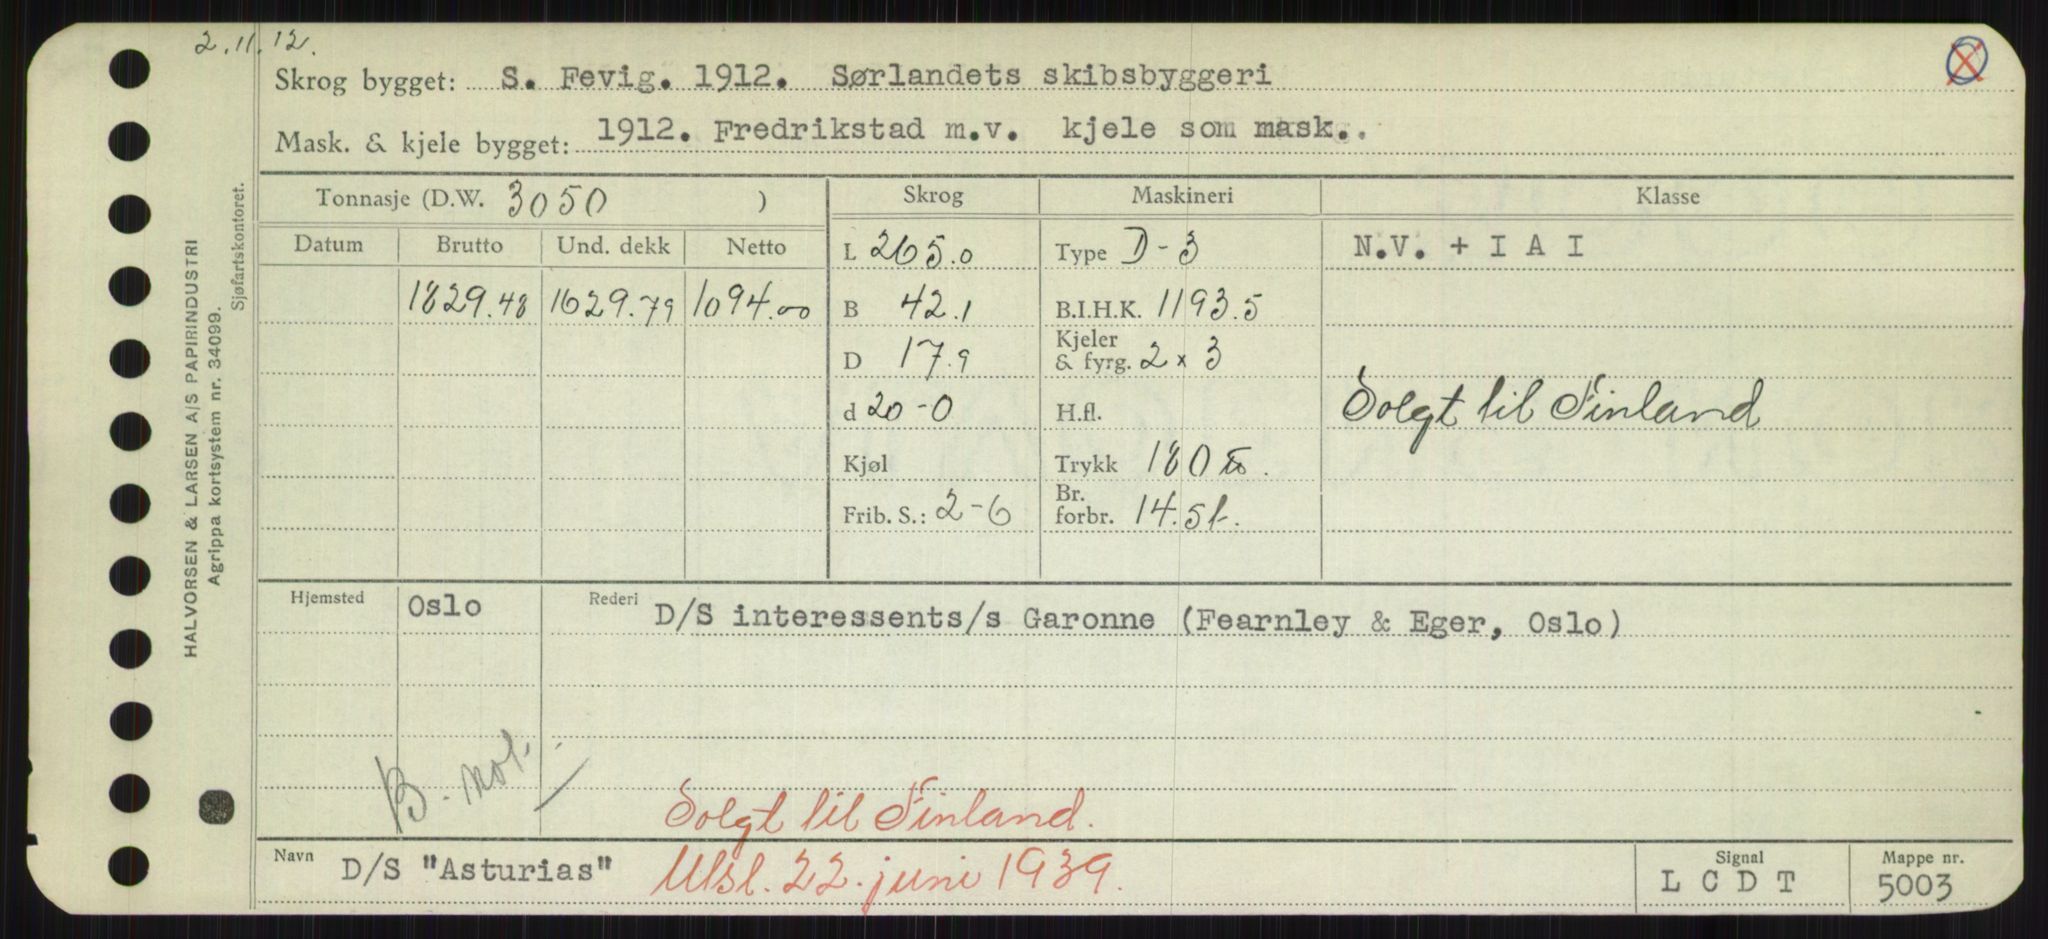 2.11.12.
Skrog bygget: S. Fevig. 1912. Sørlandets skibsbyggeri
Mask. & kjele bygget: 1912. Fredrikstad m.v. kjele som mask..
Tonnasje (D.W. 3050 ) Skrog Maskineri Klasse
Datum Brutto Und. dekk Netto L 265.0 Type D-3 N.V. + I A I
1829.48 1629.79 1094.00 B 42.1 B.I.H.K. 1193.5
D 17.9 Kjeler & fyrg. 2 x 3
d 20-0 H.fl. Solgt til Finland
Kjøl Trykk 180
Frib. S.: 2-6 Br. forbr. 14.5t.
Hjemsted Oslo Rederi D/S interessents/s Garonne (Fearnley & Eger, Oslo)
B. not.
Solgt til Finland.
Navn D/S "Asturias" Utsl. 22. juni 1939. Signal L C D T Mappe nr. 5003
HALVORSEN & LARSEN A/S PAPIRINDUSTRI
Agrippa kortsystem nr. 34099.
Sjøfartskontoret.